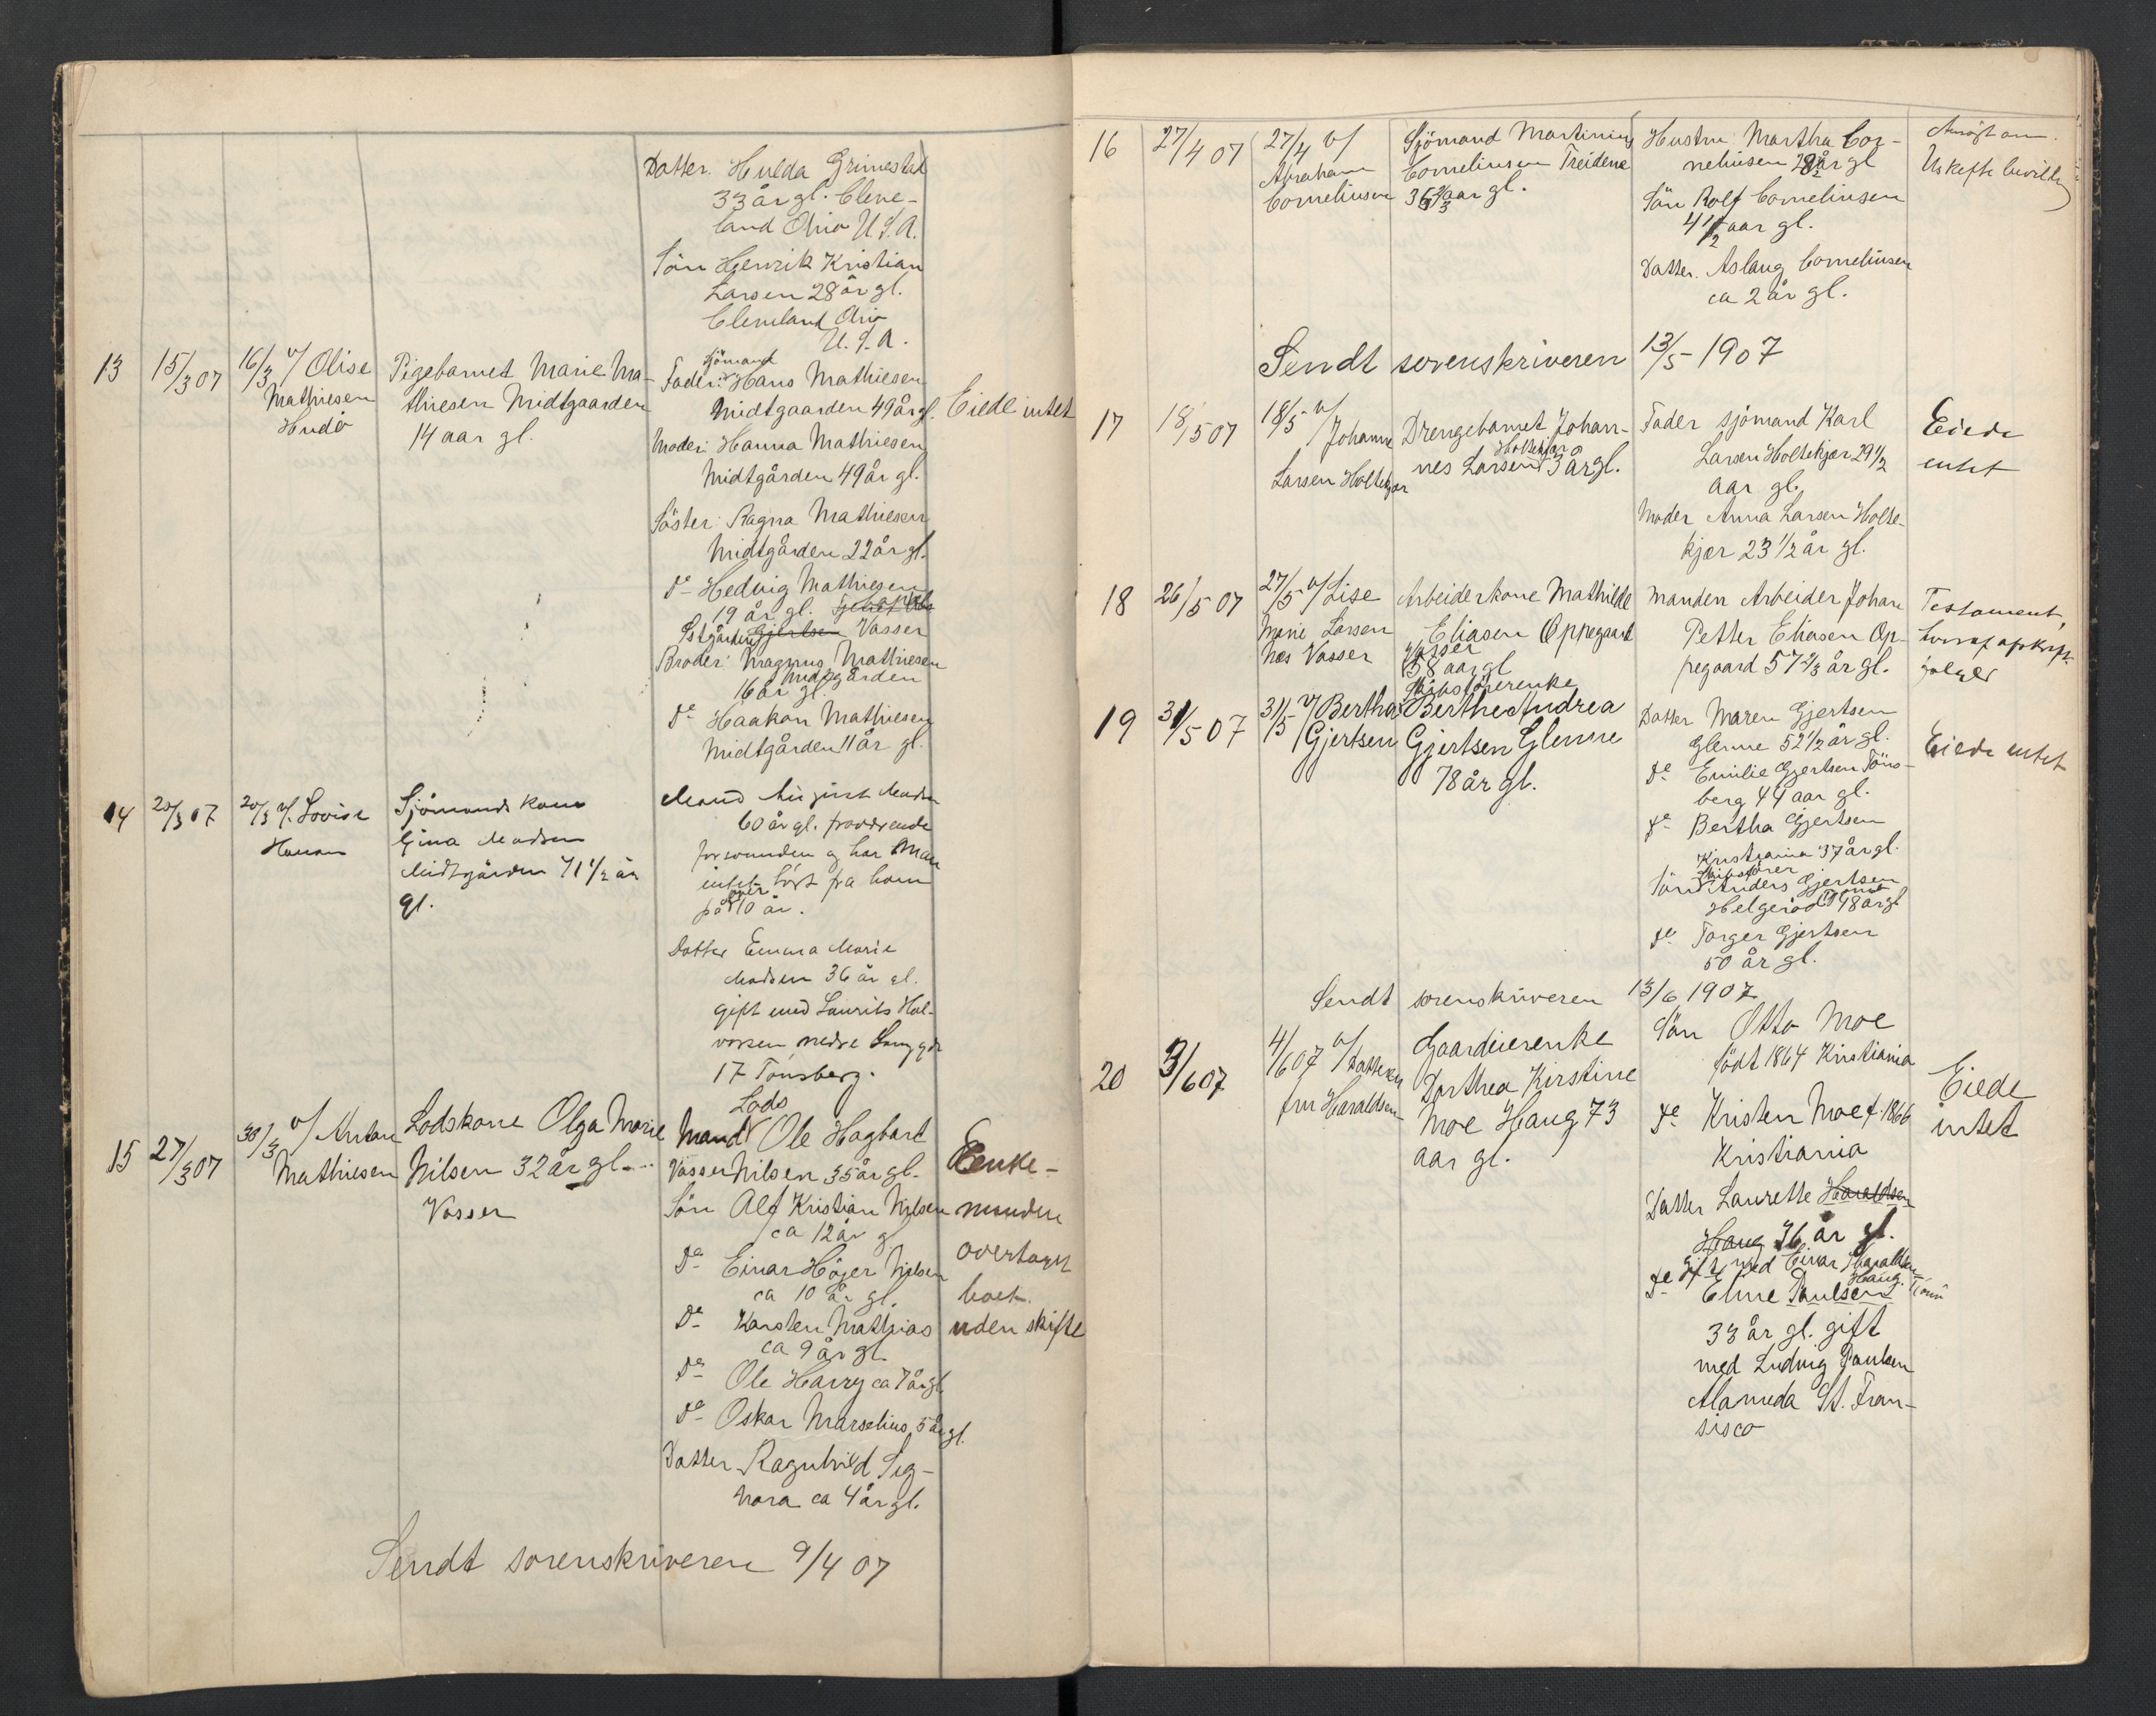 Datter. Hulda Grimestad
33 år gl. Cleve-
land Ohio U.S.A.
Sön Henrik Kristian
Larsen 28 år gl.
Cleveland Ohio
U.S.A.
13
15/3 07
16/3 v/ Olise
Mathiesen
Hudö
Pigebarnet Marie Ma-
thiesen Midtgaarden
14 aar gl.
sjömand
Fader: Hans Mathiesen
Midtgaarden 49 år gl.
Moder: Hanna Mathiesen
Midtgården 49 år gl.
Söster: Ragna Mathiesen
Midtgården 22 år gl.
do Hedvig Mathiesen
19 år gl.
Östgården Gjertsen Vasser
Broder: Magnus Mathiesen
Midtgården
16 år gl.
do Haakon Mathiesen
Midtgården 11 år gl.
Eiede intet
14
20/3 07
20/3 v/. Lovise
Hansen
Sjömands kone
Gina Madsen
Midtgården 71 1/2 år
gl.
Mand August Madsen
60 år gl. fraværende
forsvunden og har man
intet hört fra ham
over
på 10 år.
Datter Emma Marie
Madsen 36 år gl.
gift med Laurits Hal-
vorsen nedre Langgde
17 Tönsberg.
15
27/3 07
30/3 v/ Anton
Mathiesen
Lodskone Olga Marie
Nilsen 32 år gl. -
Vasser
Lods
Mand Ole Hagbart
Vasser Nilsen 35 år gl.
Sön Alf Kristian Nilsen
ca 12 år gl
do Einar Höjer Nilsen
ca 10 år gl.
do Karsten Mathias
ca 9 år gl.
do Ole Harry ca 7 år gl.
do Oskar Marselius 5 år gl.
Datter Ragnhild Sig-
nora ca 4 år gl.
Enke-
manden
overtager
boet
uden skifte
Sendt sorenskriveren 9/4 07
16
27/4 07
27/4 v/
Abraham
Corneliussen
Sjömand Martinius
Corneliusen Treidene
36 2/3 aar gl.
Hustru Martha Cor-
neliusen 28 1/2 år gl
Sön Rolf Corneliusen
4 1/2 aar gl.
Datter. Aslaug Corneliusen
ca 2 år gl.
Ansögt om
Uskifte bevilling
Sendt sorenskriveren 13/5 1907
17
18/5 07
18/5 v/
Johanne
Larsen Holtekjær
Drengebarnet Johan-
Holtekjær
nes Larsen 3 år gl.
Fader sjömand Karl
Larsen Holtekjær 29 1/2
aar gl.
Moder Anna Larsen Holte-
kjær 23 1/2 år gl.
Eiede
intet
18
26/5 07
27/5 v/ Lise
Marie Larsen
Næs Vasser
Arbeiderkone Mathilde
Eliasen Oppegaard
Vasser
58 aar gl
Manden Arbeider Johan
Petter Eliasen Op-
pegaard 57 2/3 år gl.
Testament,
hvoraf afskrift
fölger
19
31/5 07
31/5 v/ Bertha
Gjertsen
Skibsförerenke
Berthe Andrea
Gjertsen Glenne
78 år gl.
Datter Maren Gjertsen
Glenne 52 1/2 år gl.
do Emilie Gjertsen Töns-
berg 44 aar gl.
do Bertha Gjertsen
Kristiania 37 år gl.
Skibsförer
Sön Anders Gjertsen
Helgeröd Tjömö 48 år gl
do Torger Gjertsen
50 år gl.
Eiede intet
Sendt sorenskriveren 13/6 1907
20
3/6 07
4/6 07 v/ Datteren
fru Haraldsen
Gaardeierenke
Dorthea Kirstine
Moe Haug 73
aar gl.
Sön Otto Moe
födt 1864 Kristiania
do Kristen Moe f. 1866
Kristiania
Datter Laurette Haraldsen
Haug 36 år gl.
gift med Einar Haraldsen
Haug. Tjömö
do Eline Paulsen
33 år gl. gift
med Ludvig Paulsen
Alameda St. Fran-
sisco
Eiede
intet